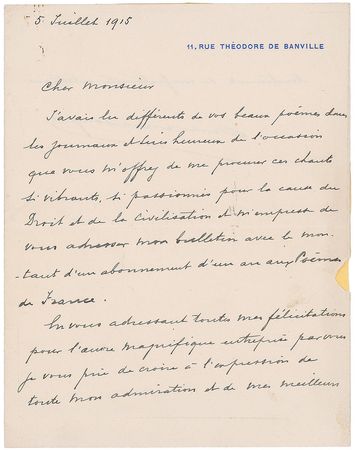 5 Juillet 1915
11, RUE THÉODORE DE BANVILLE
Cher Monsieur
J'avais lu différents de vos beaux poèmes dans
les journaux et suis heureux de l'occasion
que vous m'offrez de me procurer ces chants
si vibrants, si passionnés pour la cause du
Droit et de la Civilisation et m'empresse de
vous adresser mon bulletin avec le mon-
-tant d'un abonnement d'un an aux Poèmes
de France.
En vous adressant toutes mes félicitations
pour l'œuvre magnifique entreprise par vous
je vous prie de croire à l'expression de
toute mon admiration et de mes meilleurs